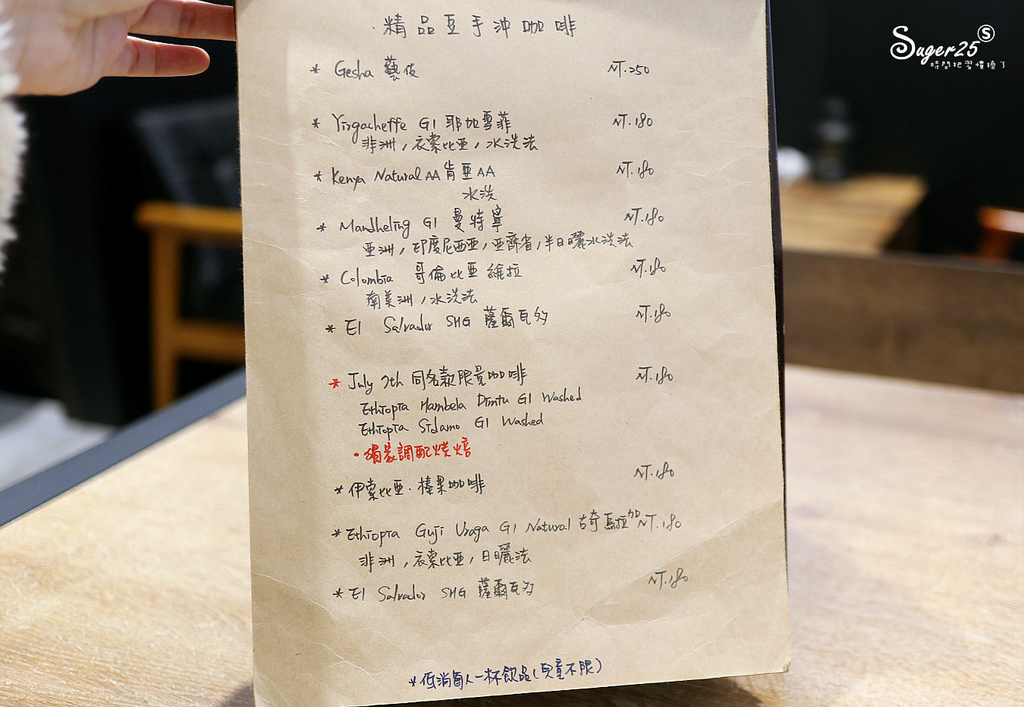 Suger25 S
時間把習慣換了
·精品豆手沖咖啡
* Gesha 藝伎 NT.250
* Yirgacheffe G1 耶加雪菲 NT.180
非洲,衣索比亞,水洗法
* Kenya Natural AA 肯亞AA NT.180
水洗
* Mandheling G1 曼特寧 NT.180
亞洲,印度尼西亞,亞齊省,半日曬水洗法
* Colombia 哥倫比亞 維拉 NT.180
南美洲,水洗法
* El Salvador SHG 薩爾瓦多 NT.180
* July 7th 同名款限量咖啡 NT.180
Ethiopia Hambela Dimtu G1 Washed
Ethiopia Sidamo G1 Washed
·獨家調配烘焙
* 伊索比亞·榛果咖啡 NT.180
* Ethiopia Guji Uraga G1 Natural 古奇烏拉加 NT.180
非洲,衣索比亞,日曬法
* El Salvador SHG 薩爾瓦多 NT.180
*低消每人一杯飲品(兒童不限)